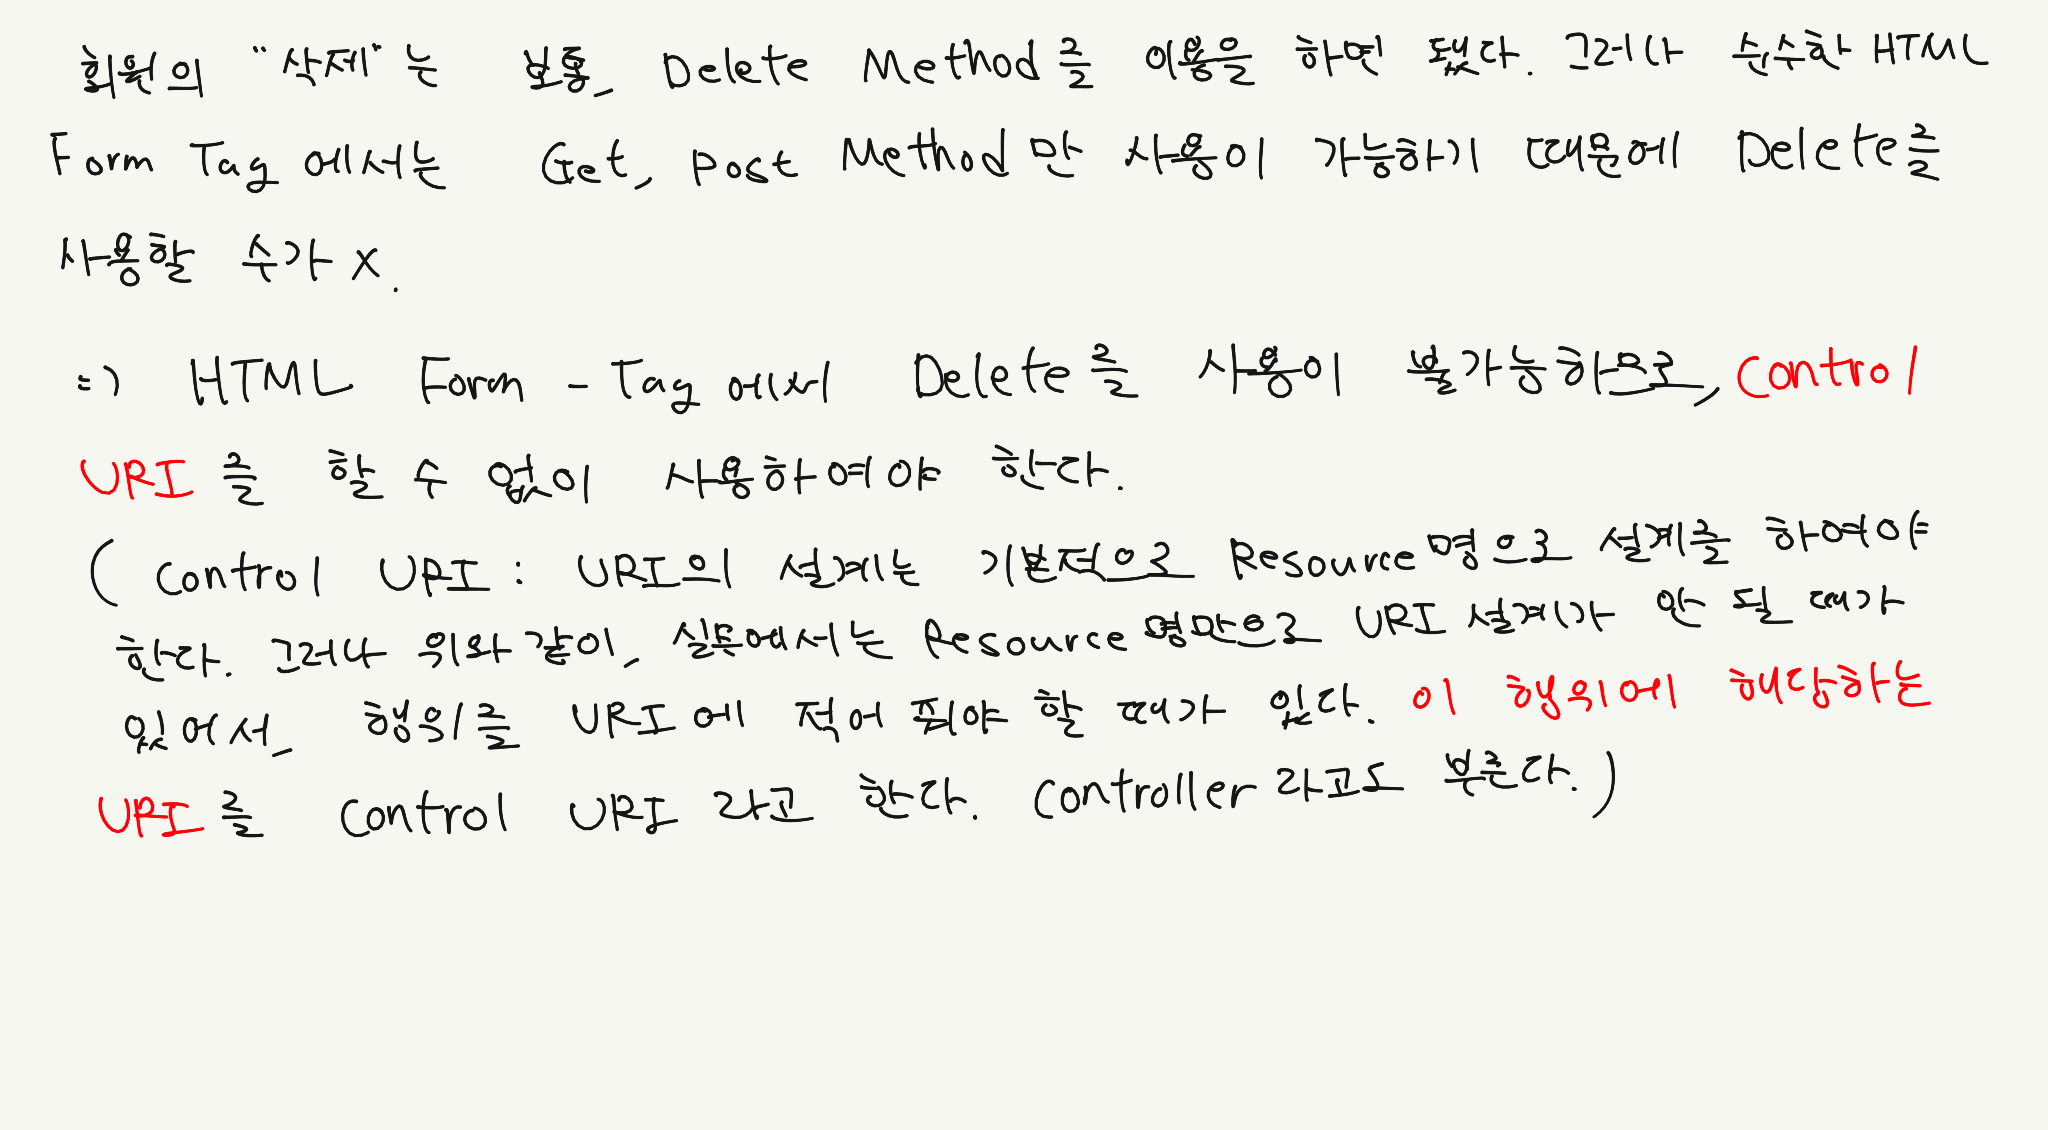 회원의 "삭제"는 보통, Delete Method를 이용을 하면 됐다. 그러나 순수한 HTML
Form Tag 에서는 Get, Post Method 만 사용이 가능하기 때문에 Delete를
사용할 수가 X.
=> HTML Form - Tag 에서 Delete를 사용이 불가능하므로, Control
URI를 할 수 없이 사용하여야 한다.
( Control URI : URI의 설계는 기본적으로 Resource명으로 설계를 하여야
한다. 그러나 위와 같이, 실무에서는 Resource명만으로 URI 설계가 안 될 때가
있어서, 행위를 URI에 적어 줘야 할 때가 있다. 이 행위에 해당하는
URI를 Control URI 라고 한다. Controller라고도 부른다.)